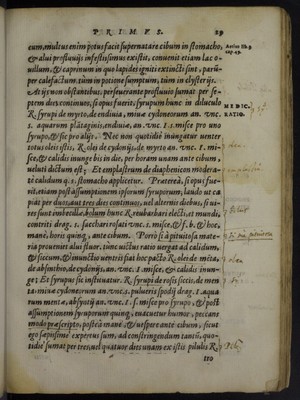 PRIMVS. 29
eum, multus enim potus facit supernatare cibum in stomacho,
& alui profluuijs infestissimus existit, conuenit etiam lac o-
uillum, & caprinum in quo lapides igniti extincti sint, paru-
per calefactum, tùm in potione sumptum, tùm in clysterijs.
At ijs non obstantibus, perseuerante profluuio sumat per se-
ptem dies continuos, si opus fuerit, syrupum hunc in diluculo
R. syrupi de myrto, de endiuia, miua cydoneorum an. vnc.
1. aquarum plātaginis, endiuiæ, an. vnc. 1. s. misce pro vno
syrupo, & sic pro alijs. Nec non quotidiè inungatur venter
totus oleis istis, R. olei de cydonijs, de myrto an. vnc. 1. mi-
sce, & calidè inunge bis in die, per horam vnam ante cibum,
veluti dictum est. Et emplastrum de diaphenicon modera-
tè calidum q. s. stomacho applicetur. Præterea, si opus fue-
rit, etiam post assumptionem ipsorum syruporum, laudo ut ca
piat per duos, aut tres dies continuos, vel alternis diebus, si ui-
res sunt imbecillæ, bolum hunc R. reubarbari electi, & mundi,
contriti drag. 1. sacchari rosati vnc. 1. misce, & f. b. & hoc,
manè, horis quinq, ante cibum. Porrò si à pituitosa mate-
ria proueniet alui fluor, tunc uictus ratio vergat ad calidum,
& siccum, & unctio uentris fiat hoc pacto R. olei de mēta,
de absinthio, de cydonijs, an. vnc. 1. misce, & calidis inun-
ge; Et syrupus sic instituatur. R. syrupi de rosis siccis, de men
ta, miuæ cydonearum an. vnc. 1. pulueris spodij drag. 1. aqua
rum mentæ, absyntij an. vnc. 1. s. misce pro syrupo, & post
assumptionem syruporum quinq, euacuetur humor, peccans
modo præscripto, postea manè & vespere ante cibum, sicut
ego sæpissimè expertus sum, ad constringendum tantū, quo-
tidiè sumat per tres, uel quatuor dies unam ex istis pilulis R.
tro
Aetius lib. 9.
cap. 29.
MEDIC.
RATIO.